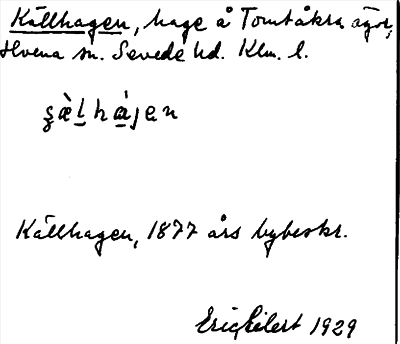 Källhagen, hage å Tomtåkra ägor,
Hvena sn. Sevede hd. Klm. l.
Källhagen, 1877 års bybeskr.
Eric Eilert 1929